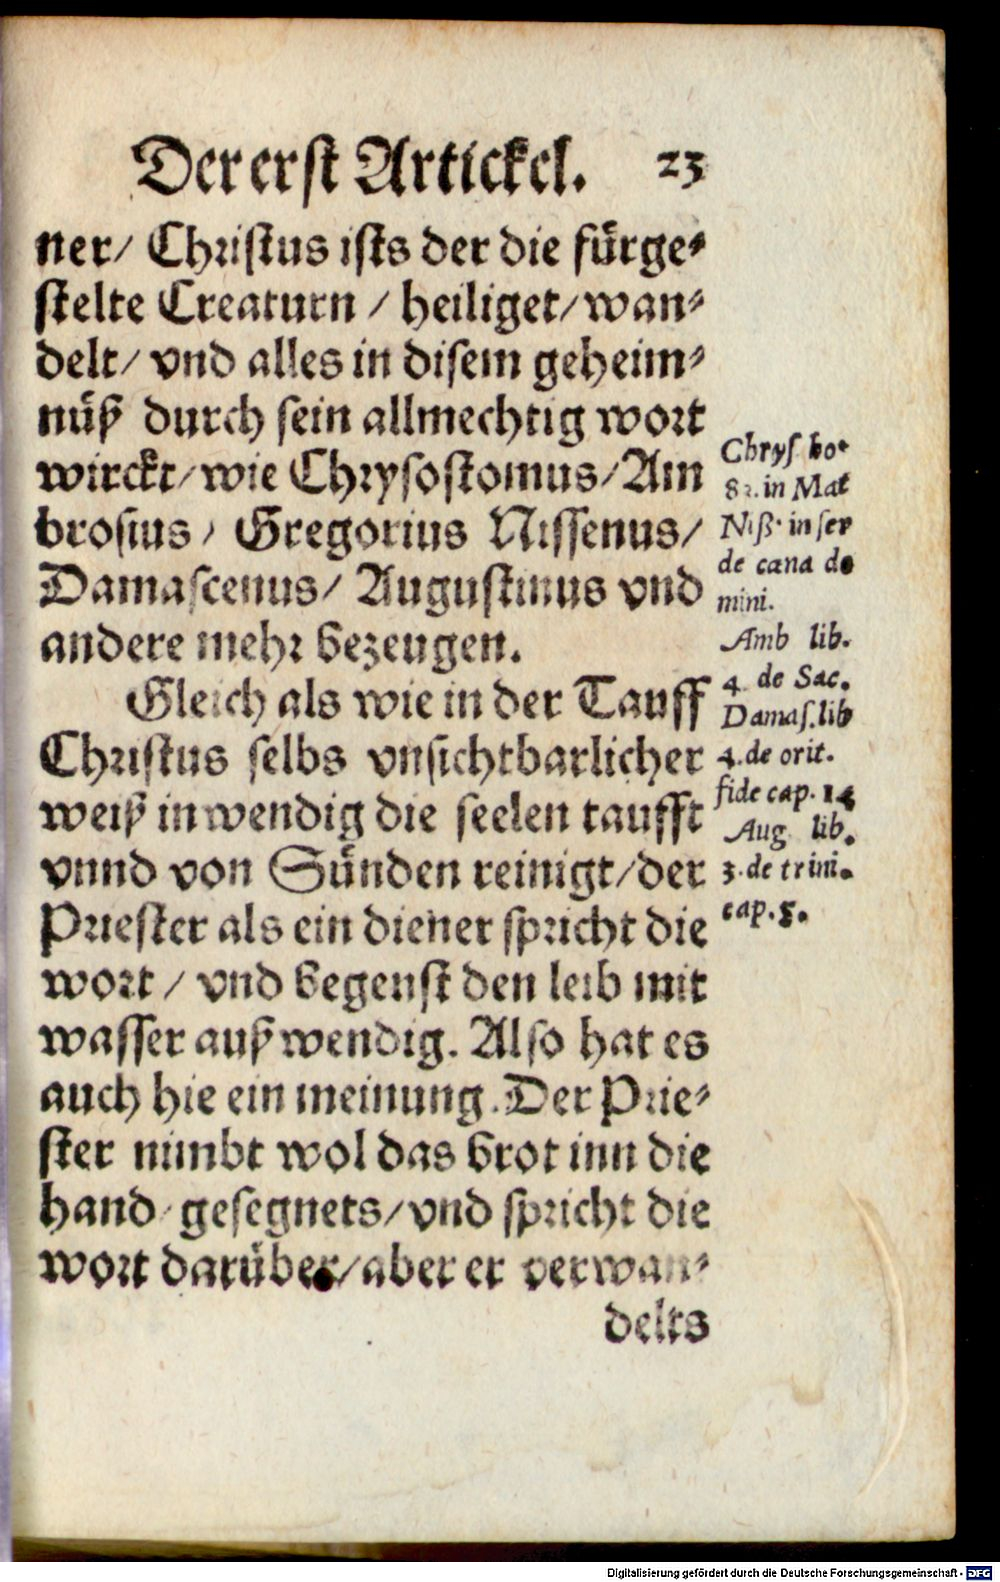 Der erst Artickel. 23
ner/ Christus ists der die fürge-
stelte Creaturn / heiliget/ wan-
delt/ vnd alles in disem geheim-
nüß durch sein allmechtig wort
wirckt/ wie Chrysostomus/ Am
brosius / Gregorius Nissenus/
Damascenus/ Augustinus vnd
andere mehr bezeugen.
Gleich als wie in der Tauff
Christus selbs vnsichtbarlicher
weiß inwendig die seelen taufft
vnnd von Sünden reinigt/ der
Priester als ein diener spricht die
wort / vnd begeust den leib mit
wasser außwendig. Also hat es
auch hie ein meinung. Der Prie-
ster nimbt wol das brot inn die
hand/ gesegnets/ vnd spricht die
wort darüber/ aber er verwan-
delts
Chrys ho.
82. in Mat
Niß. in ser
de cana do
mini.
Amb lib.
4. de Sac.
Damas. lib
4. de orit.
fide cap. 14
Aug lib.
3. de trini.
cap. 5.
Digitalisierung gefördert durch die Deutsche Forschungsgemeinschaft - DFG